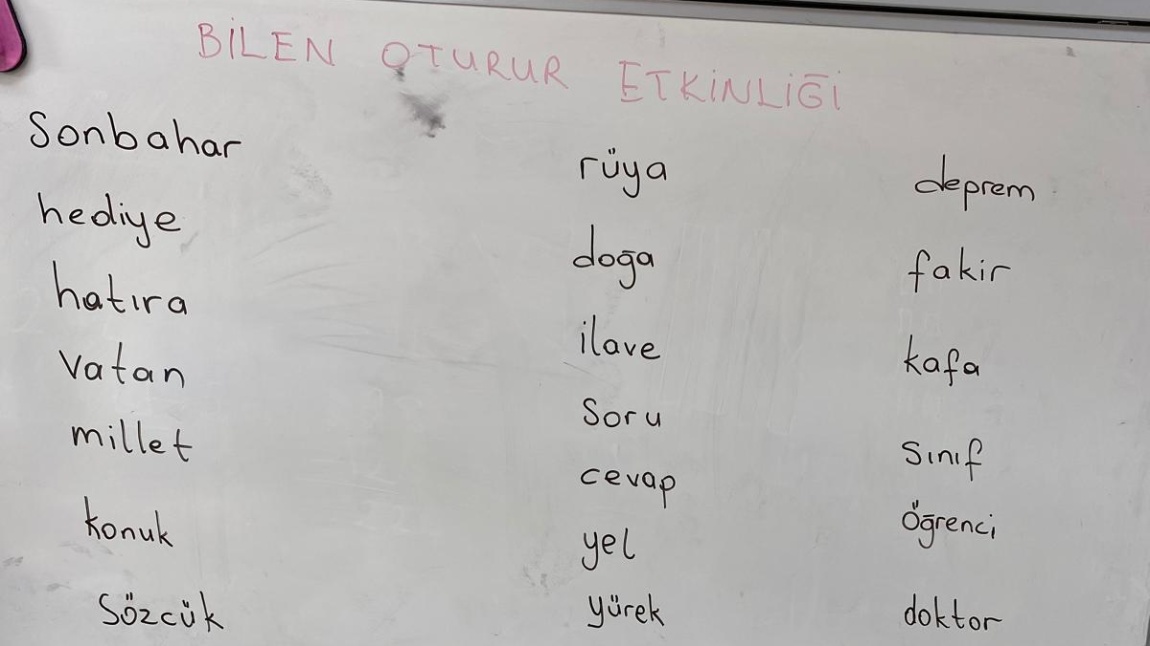 BİLEN OTURUR ETKİNLİĞİ
Sonbahar
hediye
hatıra
vatan
millet
konuk
Sözcük
rüya
doğa
ilave
Soru
cevap
yel
yürek
deprem
fakir
kafa
Sınıf
Öğrenci
doktor